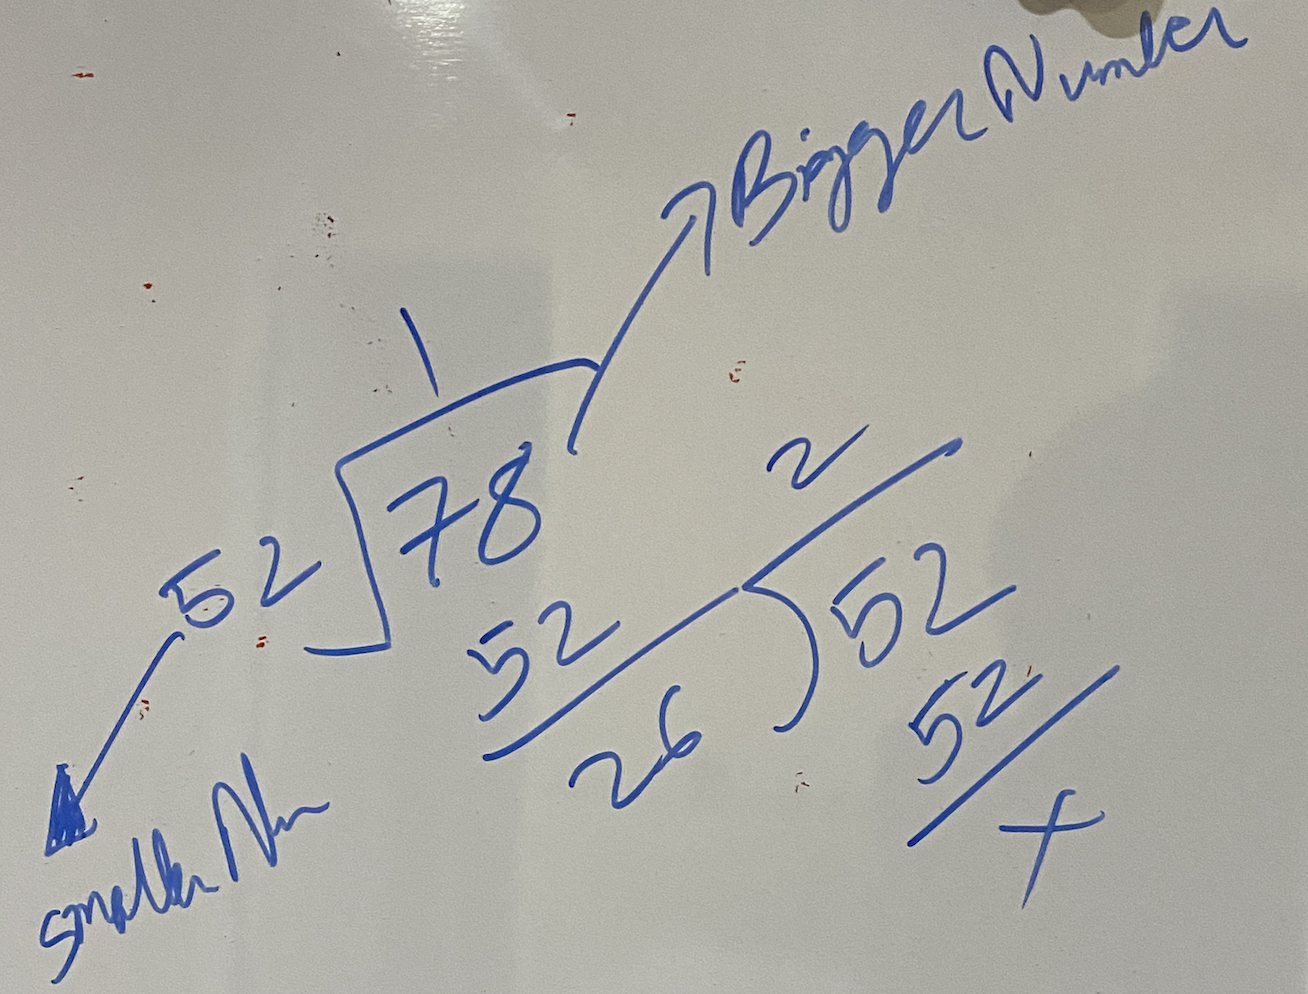 Bigger Number
1
52 78
52
2
26 52
52
x
smaller Num